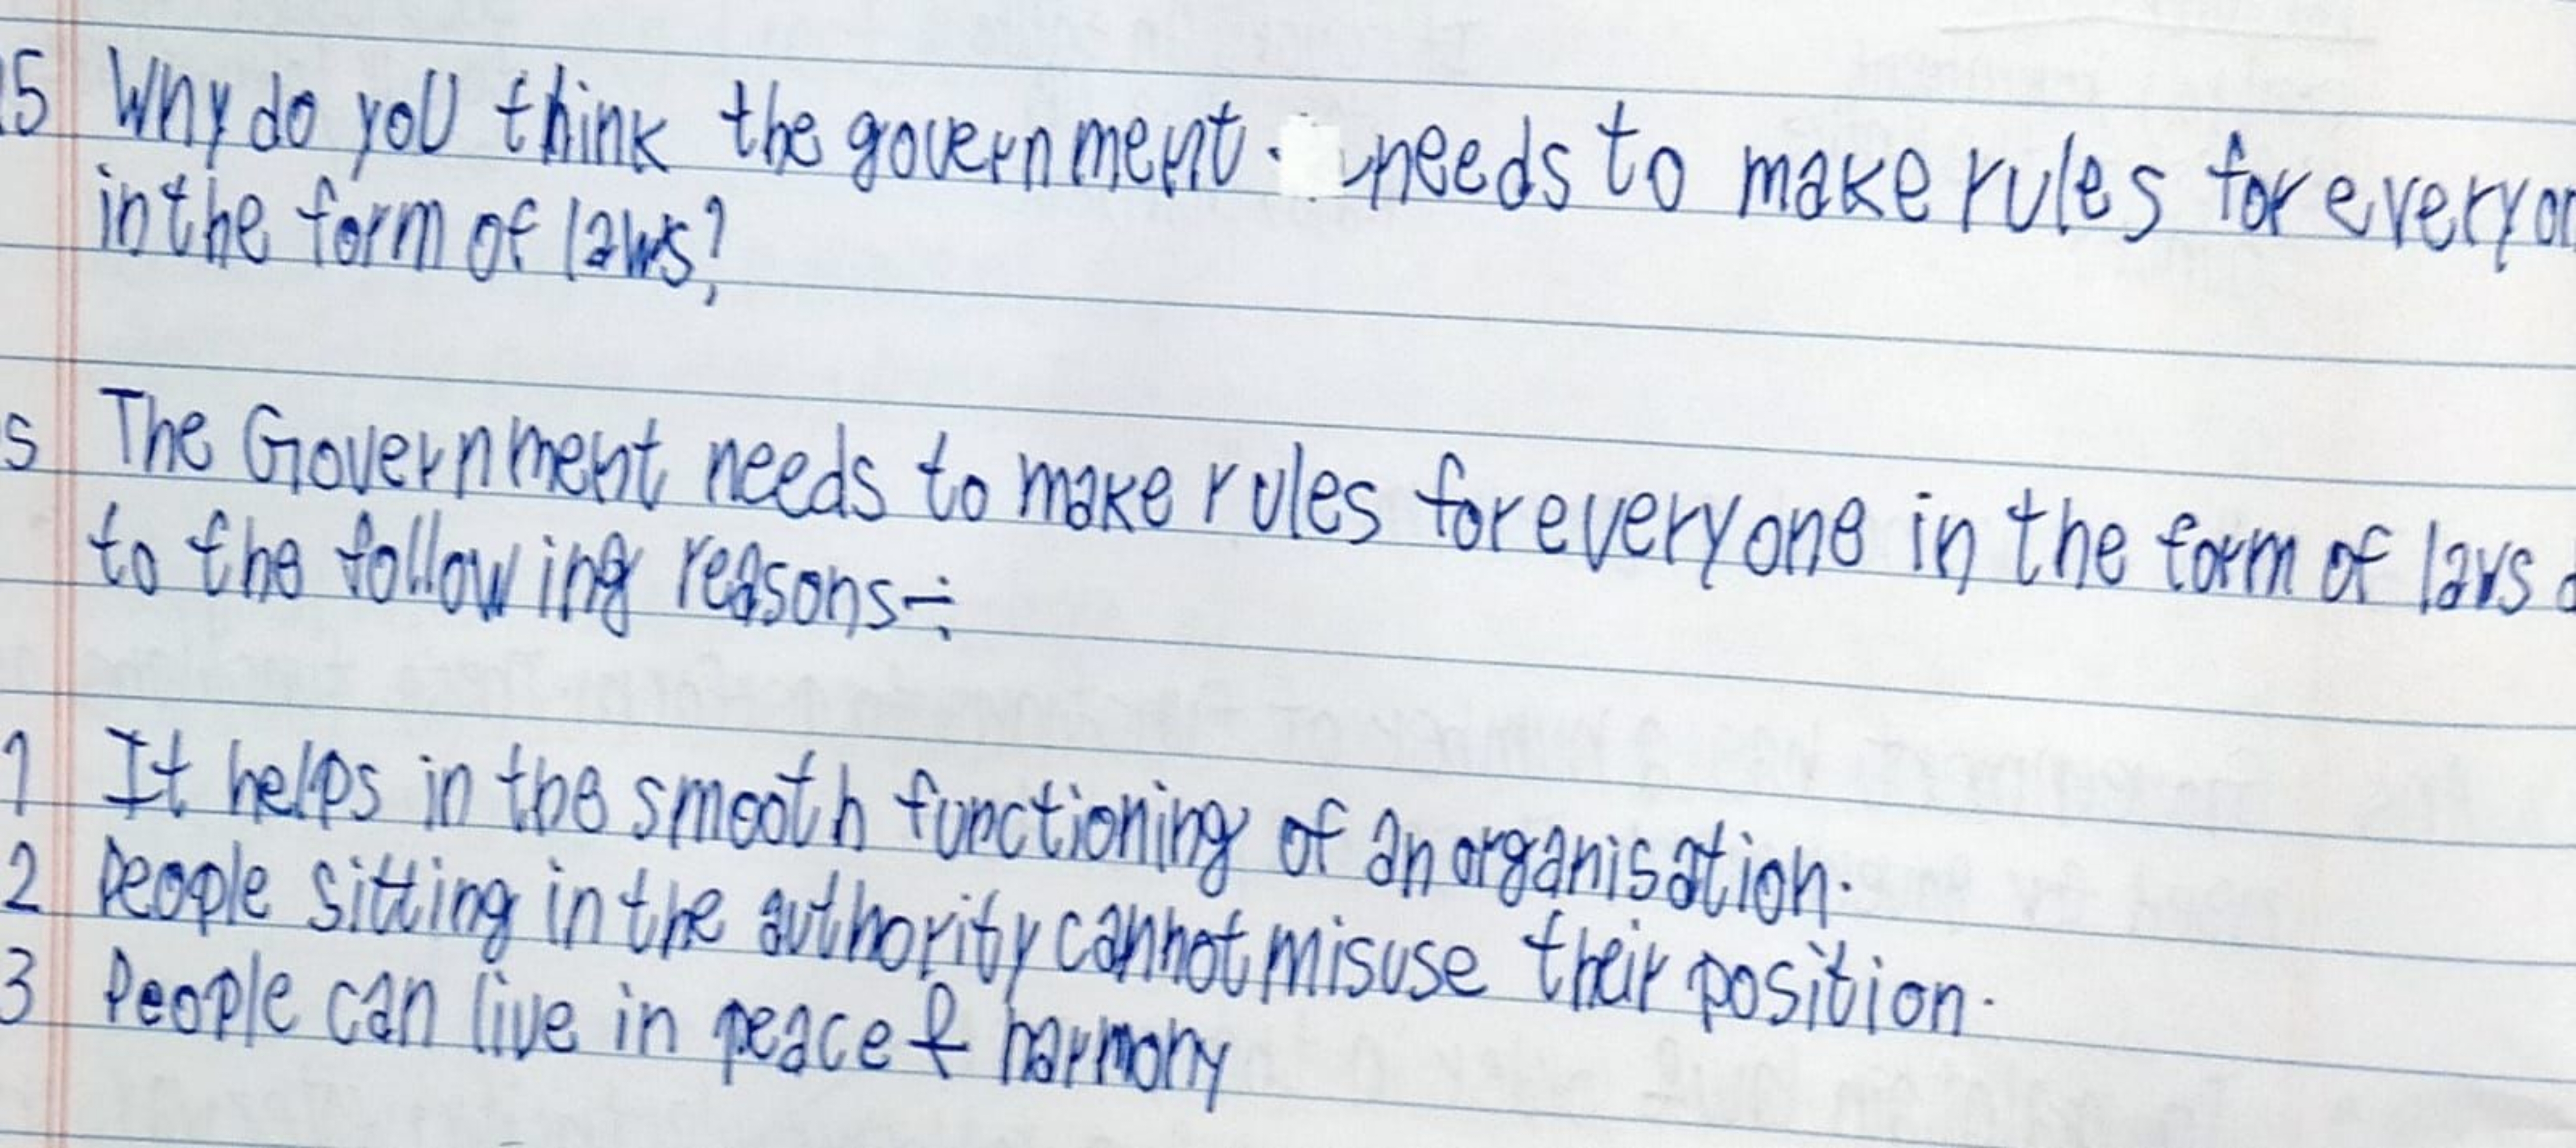 5 Why do you think the government. needs to make rules for everyon
in the form of laws?
s The Government needs to make rules for everyone in the form of laws d
to the following reasons:-
1 It helps in the smooth functioning of an organisation.
2 People sitting in the authority cannot misuse their position.
3 People can live in peace & harmony